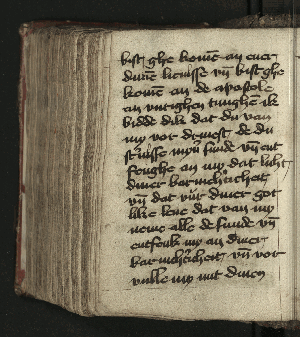 bist ghe komē an ener
duuē licnisse vn̄ bist ghe
komē an de apostele
an vurighen tunghe ik
bidde dik dat du van
my vor driuest de du
sternisse myn̄ sunde vn̄ ent
fenghe an my dat licht
diner barmehͨticheit
vn̄ dat vur diner got
liken leue dat van my
neme alle de sunde vn̄
entfenk my an diner
barmehͨticheit vn̄ vor
vulle my mit dinen